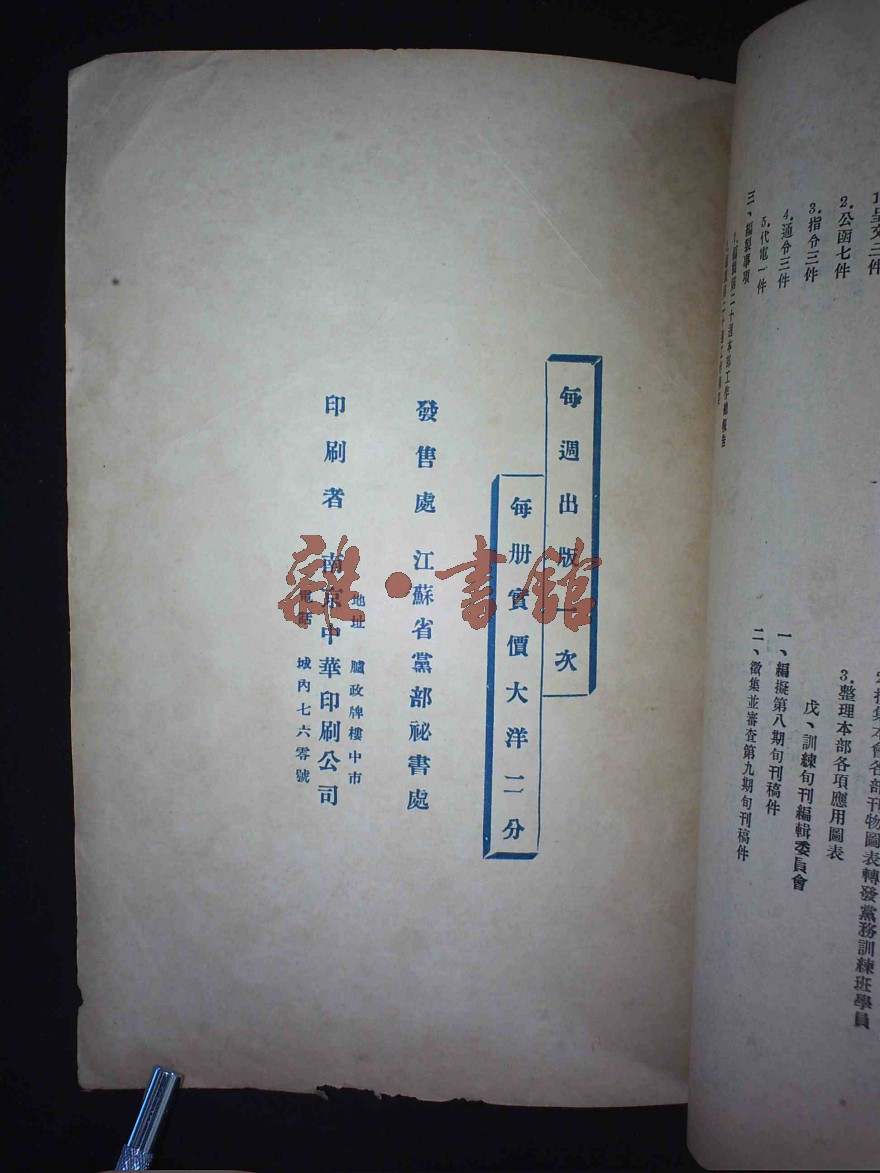 1.呈文三件
2.公函七件
3.指令三件
4.通令三件
5.代電一件
三、編製事項
2.搜集本會各部刊物圖表轉發黨務訓練班學員
3.整理本部各項應用圖表
戊、訓練旬刊編輯委員會
一、編擬第八期旬刊稿件
二、徵集並審查第九期旬刊稿件
每週出版一次
每册實價大洋二分
發售處 江蘇省黨部祕書處
地址 臚政牌樓中市
印刷者 南京中華印刷公司
電話 城內七六零號
雜·書館